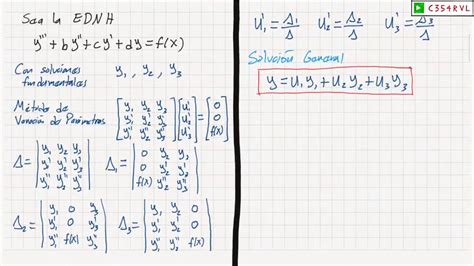 Sea la EDNH
y''' + by'' + cy' + dy = f(x)
Con soluciones fundamentales y₁, y₂, y₃
Método de Variación de Parámetros
[y₁ y₂ y₃; y₁' y₂' y₃'; y₁'' y₂'' y₃''] [u₁'; u₂'; u₃'] = [0; 0; f(x)]
Δ = |y₁ y₂ y₃; y₁' y₂' y₃'; y₁'' y₂'' y₃''| Δ₁ = |0 y₂ y₃; 0 y₂' y₃'; f(x) y₂'' y₃''|
Δ₂ = |y₁ 0 y₃; y₁' 0 y₃'; y₁'' f(x) y₃''| Δ₃ = |y₁ y₂ 0; y₁' y₂' 0; y₁'' y₂'' f(x)|
C354RVL
u₁' = Δ₁/Δ u₂' = Δ₂/Δ u₃' = Δ₃/Δ
Solución General
y = u₁y₁ + u₂y₂ + u₃y₃